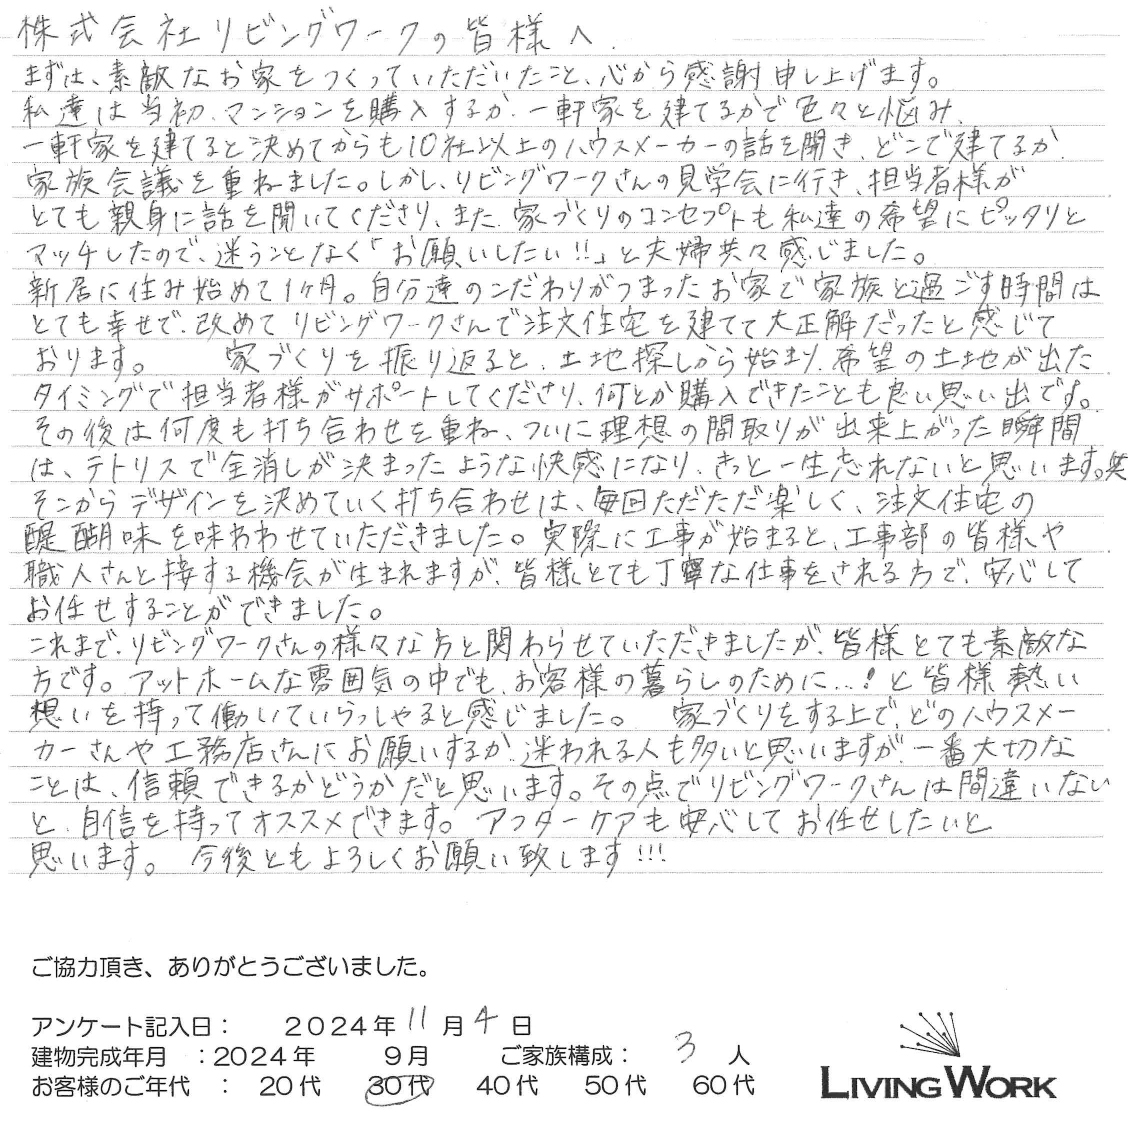 株式会社リビングワークの皆様へ
まずは、素敵なお家をつくっていただいたこと、心から感謝申し上げます。
私達は当初、マンションを購入するか、一軒家を建てるかで色々と悩み、
一軒家を建てると決めてからも10社以上のハウスメーカーの話を聞き、どこで建てるか、
家族会議を重ねました。しかし、リビングワークさんの見学会に行き、担当者様が
とても親身に話を聞いてくださり、また、家づくりのコンセプトも私達の希望にピッタリと
マッチしたので、迷うことなく「お願いしたい!!」と夫婦共々感じました。
新居に住み始めて1ヶ月。自分達のこだわりがつまったお家で家族と過ごす時間は
とても幸せで、改めてリビングワークさんで注文住宅を建てて大正解だったと感じて
おります。 家づくりを振り返ると、土地探しから始まり、希望の土地が出た
タイミングで担当者様がサポートしてくださり、何とか購入できたことも良い思い出です。
その後は何度も打ち合わせを重ね、ついに理想の間取りが出来上がった瞬間
は、テトリスで全消しが決まったような快感になり、きっと一生忘れないと思います。笑
そこからデザインを決めていく打ち合わせは、毎回ただただ楽しく、注文住宅の
醍醐味を味わわせていただきました。実際に工事が始まると、工事部の皆様や
職人さんと接する機会が生まれますが、皆様とても丁寧な仕事をされる方で、安心して
お任せすることができました。
これまで、リビングワークさんの様々な方と関わらせていただきましたが、皆様とても素敵な
方です。アットホームな雰囲気の中でも、お客様の暮らしのために...!と皆様熱い
想いを持って働いていらっしゃると感じました。 家づくりをする上で、どのハウスメー
カーさんや工務店さんにお願いするか、迷われる人も多いと思いますが、一番大切な
ことは、信頼できるかどうかだと思います。その点でリビングワークさんは間違いない
と、自信を持ってオススメできます。アフターケアも安心してお任せしたいと
思います。 今後ともよろしくお願い致します!!!
ご協力頂き、ありがとうございました。
アンケート記入日： 2024年 11 月 4 日
建物完成年月 ：2024年 9月 ご家族構成： 3 人
お客様のご年代 ： 20代 30代 40代 50代 60代
LIVING WORK